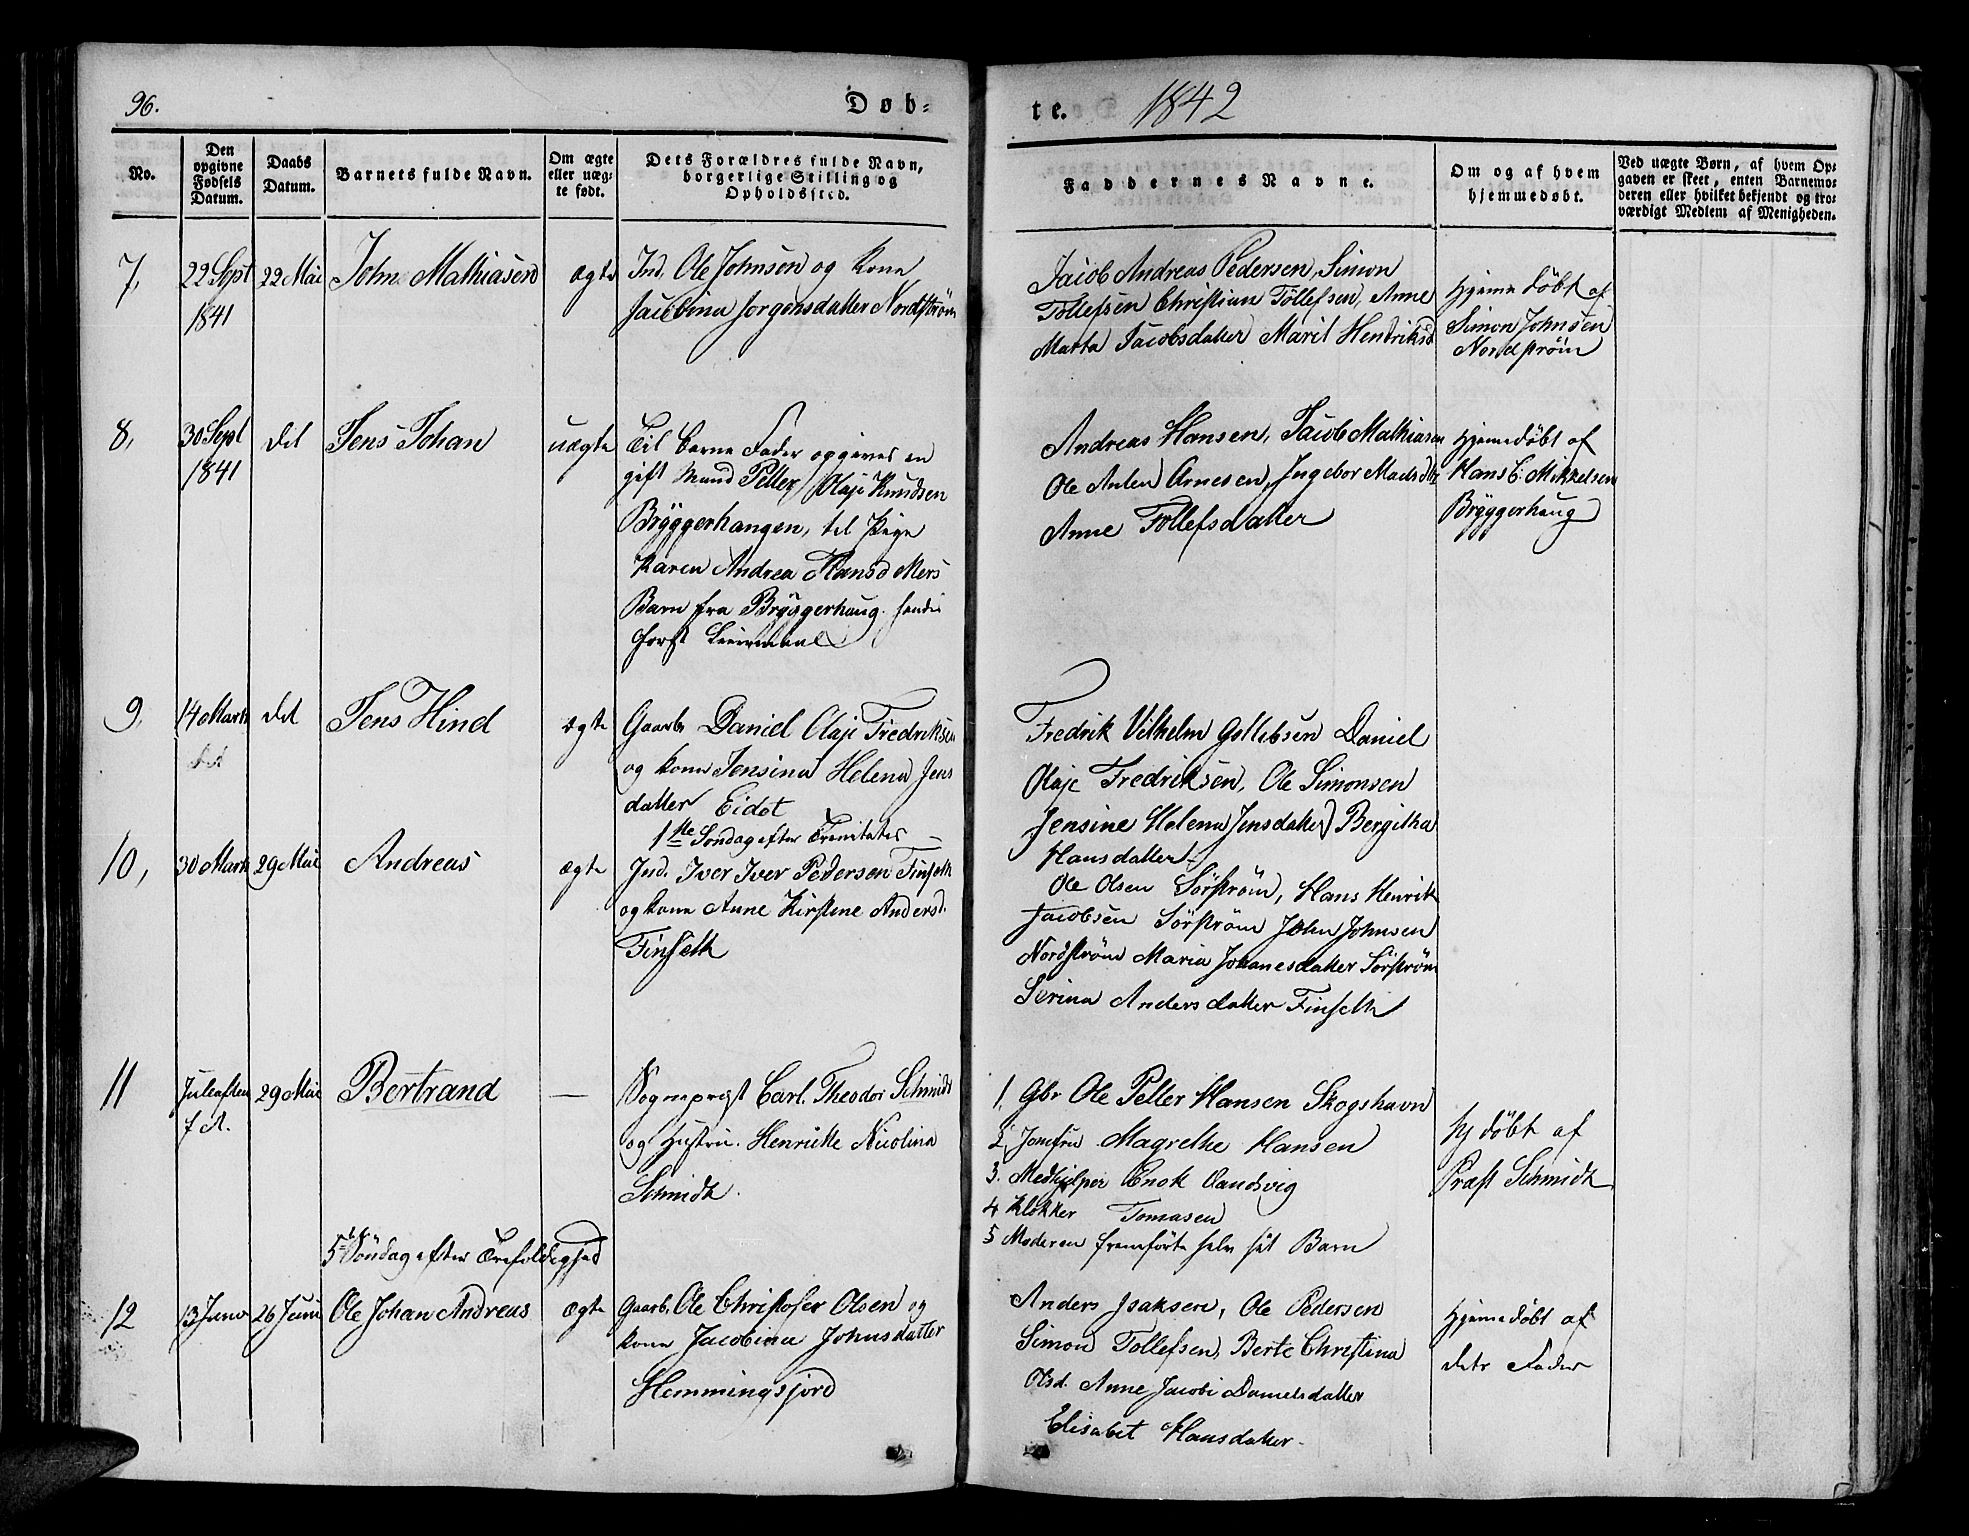 96.
Døb-
te.
1842
No.
Den
opgivne
Fødsels
Datum.
Daabs
Datum.
Barnets fulde Navn.
Om ægte
eller uæg-
te født.
Dets Forældres fulde Navn,
borgerlige Stilling og
Opholdssted.
Faddernes Navne.
Om og af hvem
hjemmedøbt.
Ved uægte Børn, af hvem Op-
gaven er skeet, enten Barnemo-
deren eller hvilket bekjendt og tro-
værdigt Medlem af Menigheden.
7,
22 Sept
1841
22 Mai
John Mathiasen
ægte
Ind. Ole Johnsen og Kone
Jacobina Jørgensdatter Nordstrøm
Jacob Andreas Pedersen, Simon
Tollefsen Christian Tollefsen, Anne
Marta Jacobsdatter Marit Henriksd
Hjemedøbt af
Simon Johnsen
Nordstrøm
8,
30 Sept
1841
det
Jens Johan
uægte
Til Barne Fader opgives en
gift Mand Petter Olaje Knudsen
Brøggerhaugen, til Pige
Karen Andrea Hansd
Barn fra Brøggerhaug. hendes
første Leiermaal
Andreas Hansen, Jacob Mathiasen
Ole Anten Arnesen, Ingebor Madsdtr
Anne Tollefsdatter
Hjemedøbt af
Hans C. Mikkelsen
Brøggerhaug
9,
14 Marts
det
det
Jens Hind
ægte
Gaarbr Daniel Olaje Fredriksen
og Kone Jensina Helena Jens
datter Eidet
Fredrik Vilhelm Gottlibsen Daniel
Olaje Fredriksen, Ole Simonsen
Jensine Helena Jensdatter Bergitha
Hansdatter
1ste Søndag efter Trinitatis
10,
30 Marts
29 Mai
Andreas
ægte
Ind. Iver Iver Pedersen Finseth
og Kone Anne Kirstine Andersd.
Finseth
Ole Olsen Sørstrøm, Hans Henrik
Jacobsen Sørstrøm John Johnsen
Nordstrøm Maria Johanesdatter Sørstrøm
Serina Andersdatter Finseth
11
Juleaften
f. A.
29 Mai
Bertrand
—
Sognepræst Carl Theodor Schmidt
og Hustru. Henriette Nicolina
Schmidt.
1. Gbr Ole Petter Hansen Skogshavn
2, Jomfru Magrethe Hansen
3. Medhjelper Enok Sandvig
4 Klokker Tomasen
5 Moderen fremførte selv sit Barn
Hj døbt af
Præst Schmidt
5te Søndag efter Trefoldighed
12
13 Juno
26 Juni
Ole Johan Andreas
ægte
Gaarb. Ole Christofer Olsen og
Kone Jacobina Johnsdatter
Hemmingsfjord
Anders Isaksen, Ole Pedersen
Simon Tollefsen, Berte Christina
Olsd. Anne Jacobi Danielsdatter
Elisabet Hansdatter.
Hjemedøbt af
dets Fader